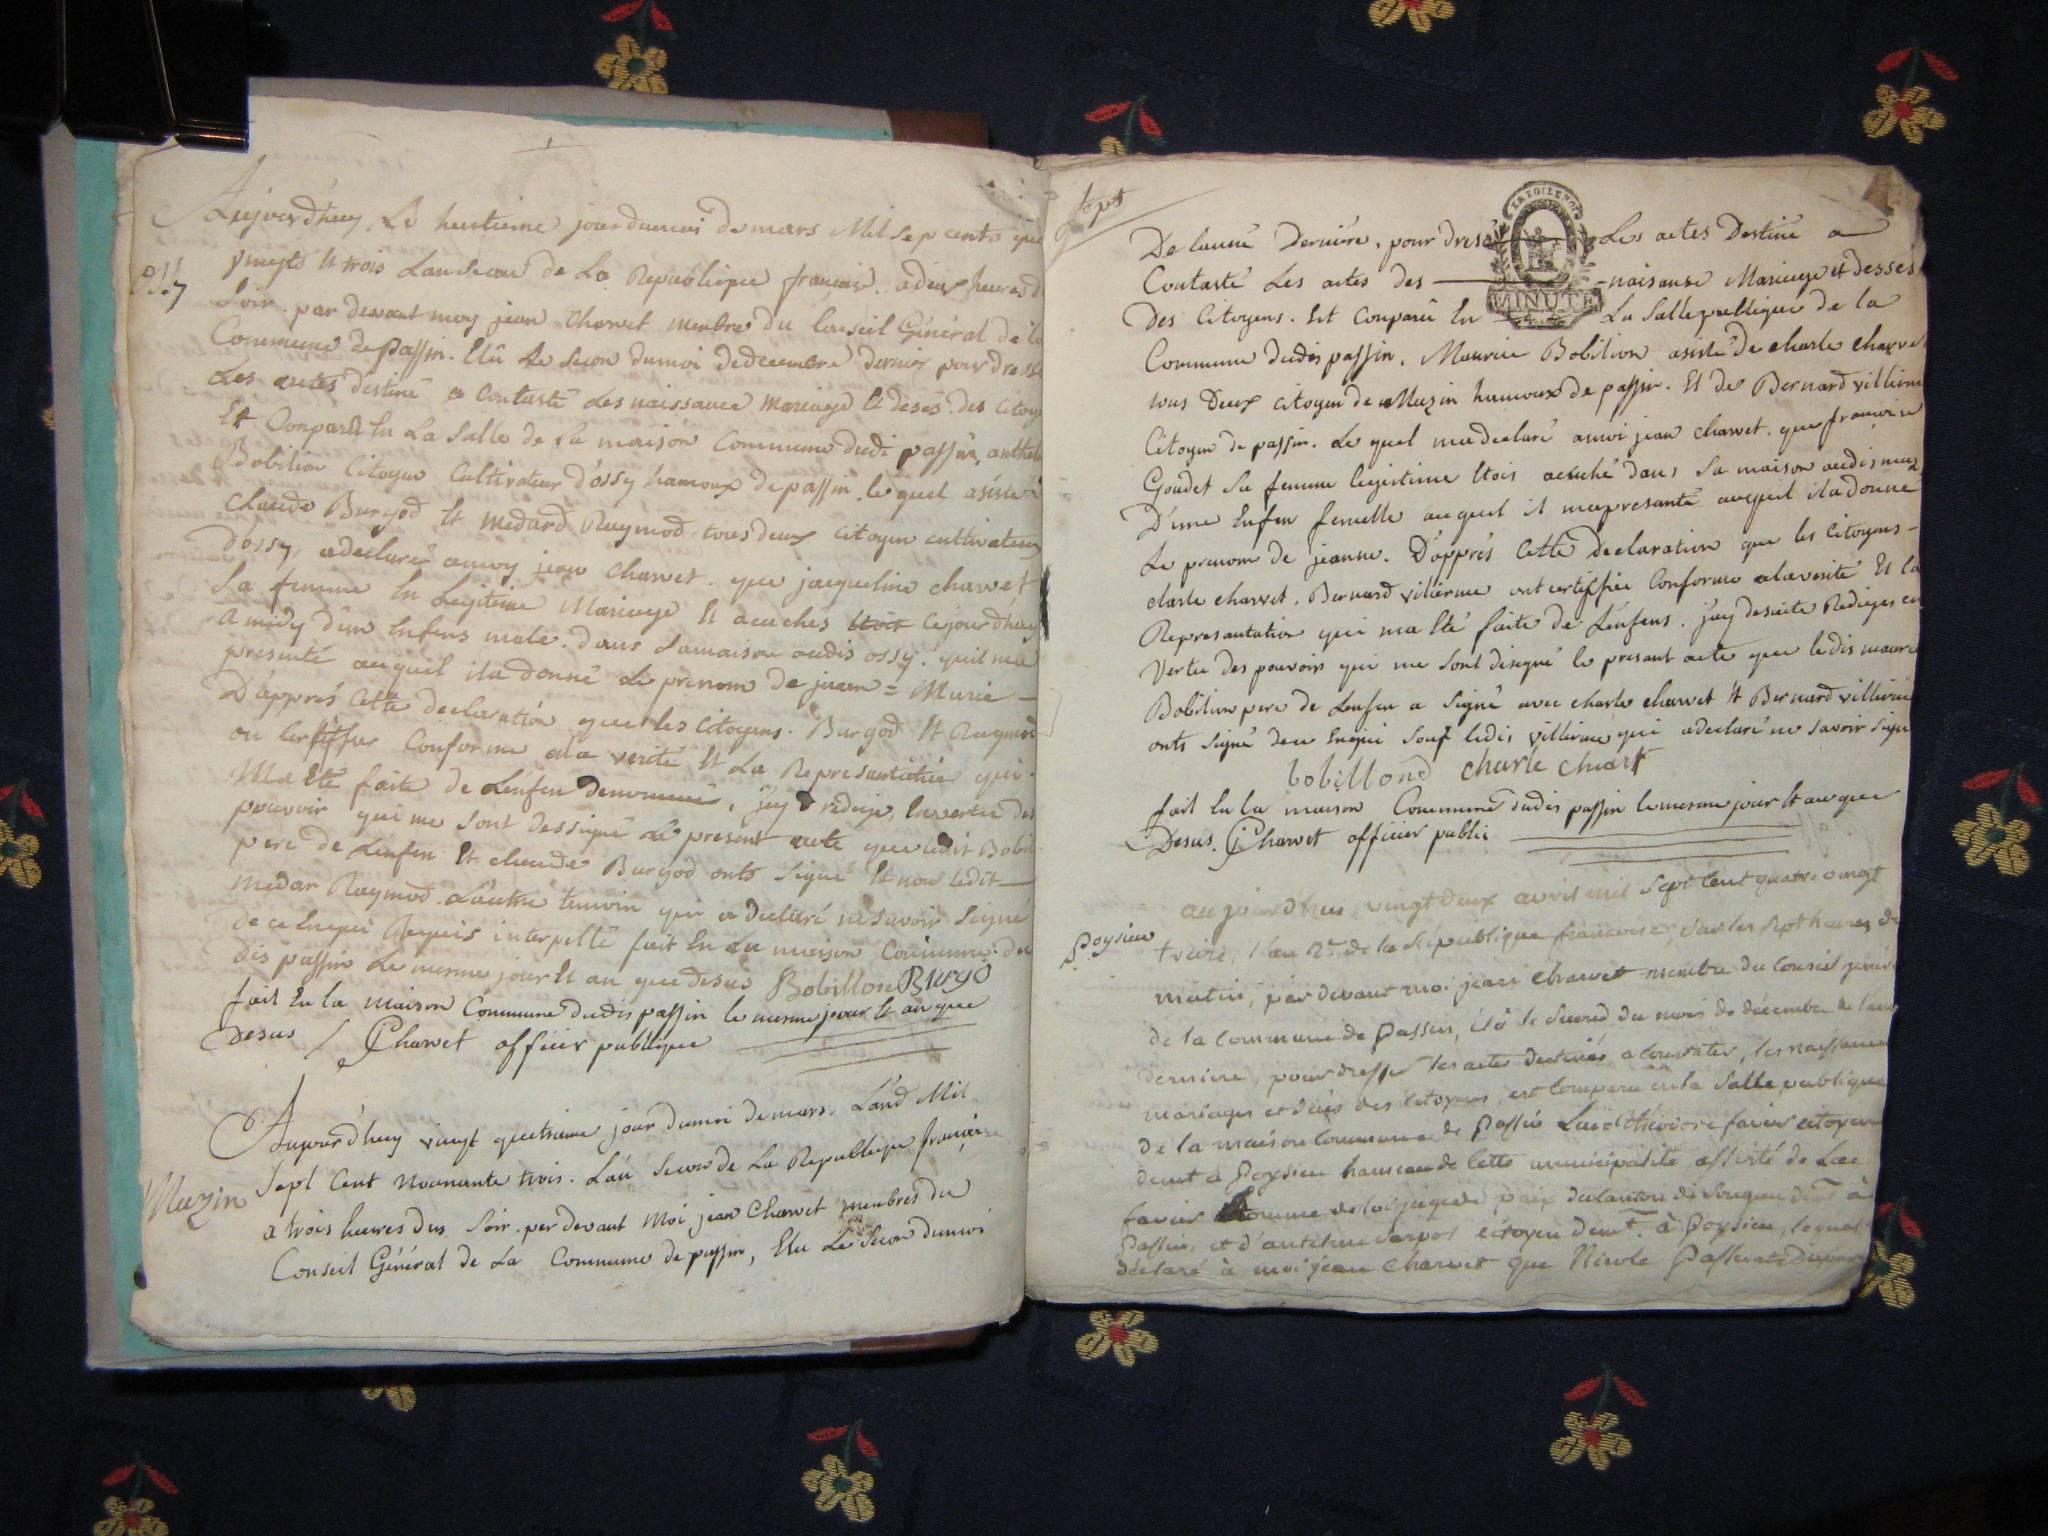 Aujourd'huy Le huitieme jour dumoi de mars Mil sep cents
Ossy
vingts et trois Lan Secon de La Republique françoise. a deux heures d
Soir. par devant moy jean Charvet membre Du Conseil Général de la
Commune de passin. Elû Le Secon dumoi dedecembre dernier pour dressé
Les actes destiné a Contasté Les naissance Mariage Et desés des Citoy
Et Conparû En La Salle de La maison Commune dudi passin, anthel
Bobilion Citoyen Cultivateur d'ossy hamoux de passin lequel asisté
Claude Burgod Et Medard Reymod tous deux Citoyen cultivateur
D'ossy, a declaré amoy jean Charvet que jacqueline charvet
Sa femme En Legitime Mariage Et acuchés Etoit Cejourdhuy
a midy d'un Enfens male. dans Samaison audis ossy. quil ma
presenté auquel ila donné Le prenom de jean = Marie
D'apprés Cette declaration que les Citoyens Burgod Et Reymod
on Certiffier Conforme ala verité Et La Represantation qui
Ma Eté faite de L'enfen denommé, j'ay redigé, Envertu des
pouvoir qui me Sont dessigné Le present acte que ledit Bobil
pere de Lenfen Et claude Burgod onts Signé Et non ledit
medar Reymod L'autre temoin qui a declaré ne Savoir Signé
de ce Enqui Requis interpellé fait En La maison Commune du
dis passin Le mesme jour Et an que desus Bobillion Burgo
fait En la maison Commune dudis passin le mesme jour Et an que
Desus / JCharvet officier publique
Aujourd'huy vingt quatrieme jour dumoi de mars. Land Mil
Muzin
Sept Cent Nonante trois. L'an Secon de La Republique françoise
a trois heures dus Soir. per devant Moi jean Charvet membres du
Conseil Général de La Commune de passin, Elu Le Secon dumoi
De lanné Derniére. pour dresé Les actes Destiné a
MINUTE
Contasté Les actes des naisanse Mariage et desses
Des Citoyens. Est Conparû En La Salle publique de la
Commune dudis passin. Maurice Bobilion asisté de charle charvet
tous Deux citoyen de Muzin hamoux de passin. Et de Bernard villerme
Citoyen de passin. Le quel ma declaré amoi jean charvet. que françoise
Goudet Sa femme legitime Etois acuché dans Sa maison audis muzin
D'une Enfen femelle auquel il ma presanté auquel ila donné
Le prenom de jeanne. D'apprés Cette declaration que les Citoyens
charle charvet. Bernard villerme ont certiffiée Conforme alaverité Et la
Represantation qui ma Eté faite de L'enfens. j'ay desuite Rediger en
Vertue des pouvoir qui me Sont disigné le presant acte que ledis maurice
Bobilion pere de Lenfen a Signé avec charle charvet Et Bernard villerme
onts Signé de ce Enqui Souf ledis villerme qui a declaré ne Savoir Signé
bobillond charle charvt
fait En la maison Commune dudis passin le mesme jour Et an que
Desus. JCharvet officier public
aujourd'hui vingtdeux avril mil Sept Cent quatre vingt
Poysieu
treize, l'an 2e. de la République françoise, Sur les Sept heures du
matin, par devant moi jean Charvet membre du Conseil général
de la Commune de Passin, élû le Second du mois de décembre de l'année
derniere, pour dresser les actes destinés a Constater, les naissances
mariages et décès des Citoyens, est Comparu en la Salle, publique
de la maison Commune de Passin Favier citoyen
demt à Poysieu hameau de Cette municipalité, assisté de
favier homme de loi juge de paix du Canton de Songieu demt. à
Passin, et d'antelme Citoyen demt. à Poysieu, lequel
déclaré à moi jean Charvet que Nicole Passerat